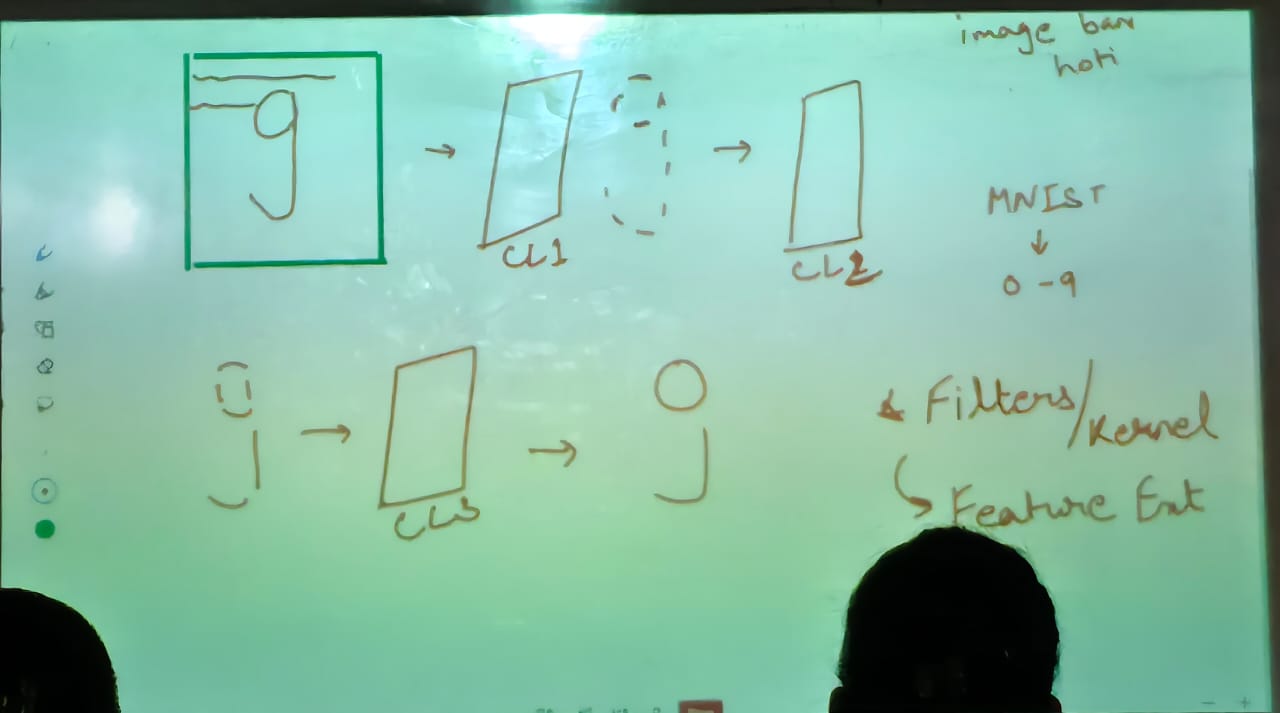 image ban
hoti
9
CL1
CL2
MNIST
↓
0 - 9
CL3
Filters/Kernel
Feature Ext